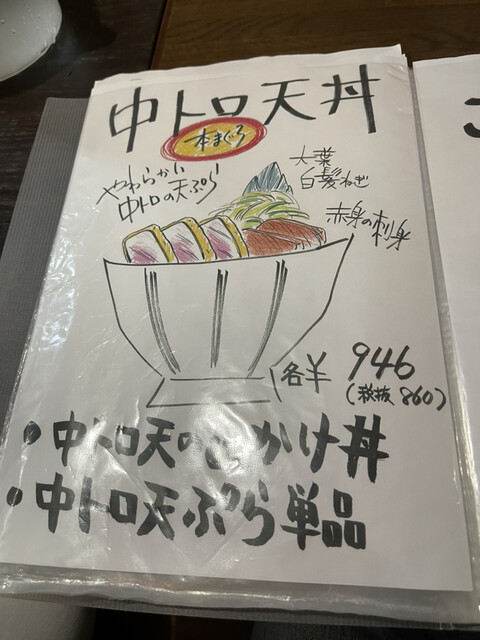 中トロ天丼
本まぐろ
やわらかい
中トロの天ぷら
大葉
白髪ねぎ
赤身の刺身
各¥946
(税抜860)
・中トロ天のっかけ丼
・中トロ天ぷら単品